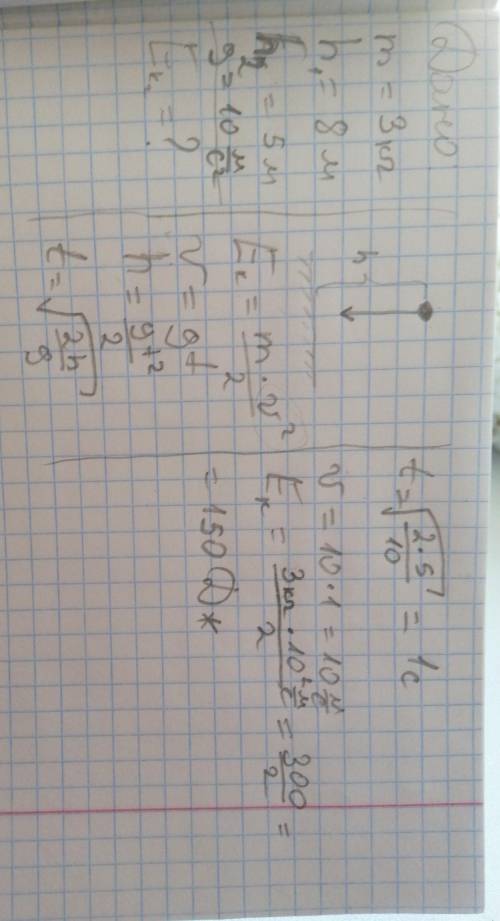 Дано:
m = 3 кг
h₁ = 8 м
h₂ = 5 м
g = 10 м/с²
Eₖ = ?
h
Eₖ = m · v² / 2
v = gt
h = gt² / 2
t = √(2h / g)
t = √(2·5 / 10) = 1с
v = 10 · 1 = 10 м/с
Eₖ = 3 кг · 10² м/с / 2 = 300 / 2 =
= 150 Дж